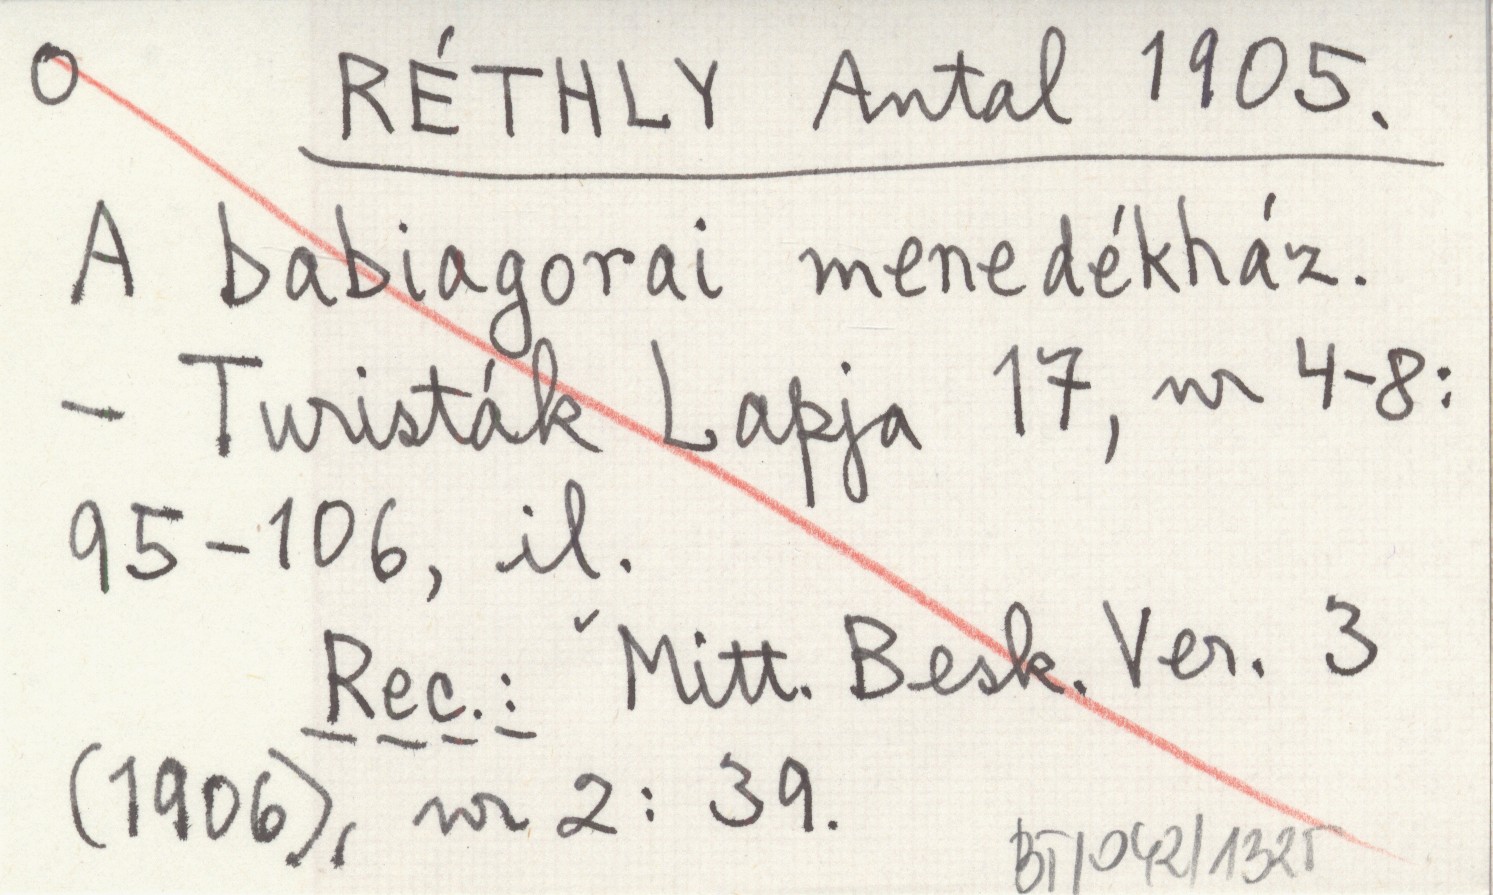 O RÉTHLY Antal 1905.
A babiagorai menedékház.
- Turisták Lapja 17, nr 4-8:
95-106, il.
Rec.: Mitt. Besk. Ver. 3
(1906), nr 2: 39.
BT/042/1325